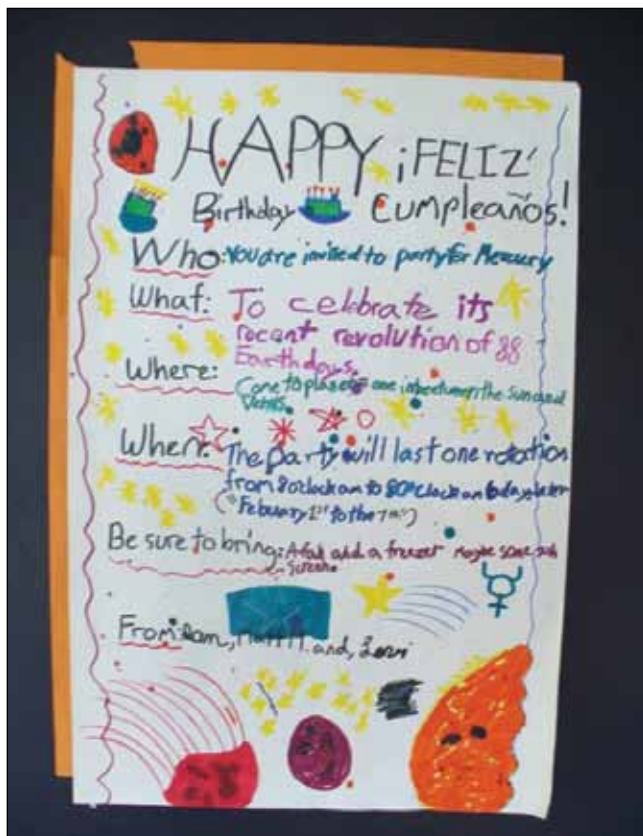 HAPPY ¡FELIZ
Birthday Cumpleaños!
Who: You are invited to party for Mercury
What: To celebrate its
recent revolution of 88
Earth days.
Where: Come to planet one inbetween the sun and
Venus.
When: The party will last one rotation
from 8 o'clock am to 8 o'clock am 6 days later
("Febuary 1st to the 7th")
Be sure to bring: A fan and a freezer Maybe some sun
screen.
From: Matt H. and,